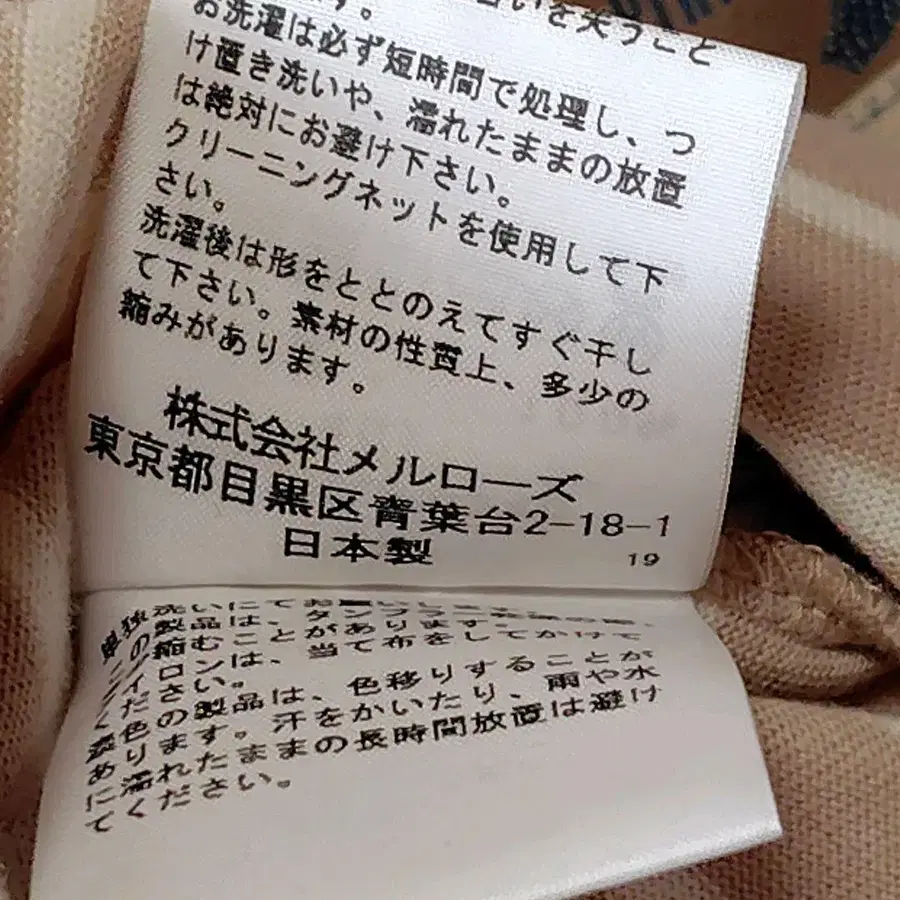 ます。
合いを失うこと
お洗濯は必ず短時間で処理し、つ
け置き洗いや、濡れたままの放置
は絶対にお避け下さい。
クリーニングネットを使用して下
さい。
洗濯後は形をととのえてすぐ干し
て下さい。素材の性質上、多少の
縮みがあります。
株式会社メルローズ
東京都目黒区青葉台2-18-1
日本製
19
単独洗いにてお
この製品は、タンブラー
り縮むことがあります
アイロンは、当て布をしてかけて
ください。
濃色の製品は、色移りすることが
あります。汗をかいたり、雨や水
に濡れたままの長時間放置は避け
てください。